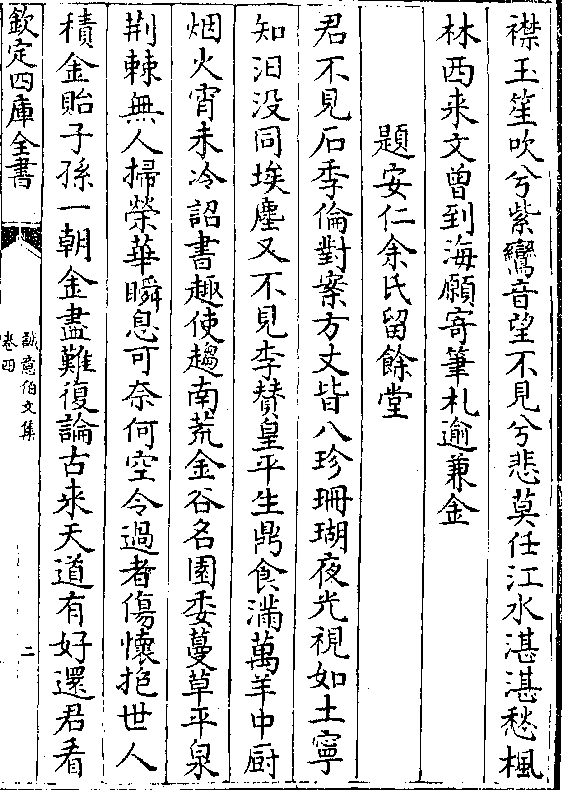 襟玉笙吹兮紫鸞音望不見兮悲莫任江水湛湛愁楓
林西来文曾到海願寄筆札逾兼金
題安仁余氏留餘堂
君不見石季倫對案方丈皆八珍珊瑚夜光視如土寧
知汨没同埃塵又不見李賛皇平生鼎食滿萬羊中厨
烟火宵未冷詔書趣使趨南荒金谷名園委蔓草平泉
荆棘無人掃榮華瞬息可奈何空令過者傷懷抱世人
積金貽子孫一朝金盡難復論古来天道有好還君看
欽定四庫全書
誠意伯文集
卷四
二